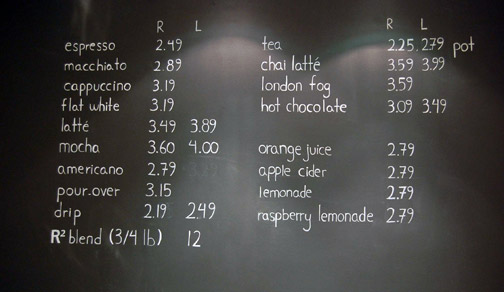 R L
espresso 2.49
macchiato 2.89
cappuccino 3.19
flat white 3.19
latté 3.49 3.89
mocha 3.60 4.00
americano 2.79
pour.over 3.15
drip 2.19 2.49
R² blend (3/4 lb) 12
R L
tea 2.25. 2.79 pot
chai latté 3.59 3.99
london fog 3.59
hot chocolate 3.09 3.49
orange juice 2.79
apple cider 2.79
lemonade 2.79
raspberry lemonade 2.79